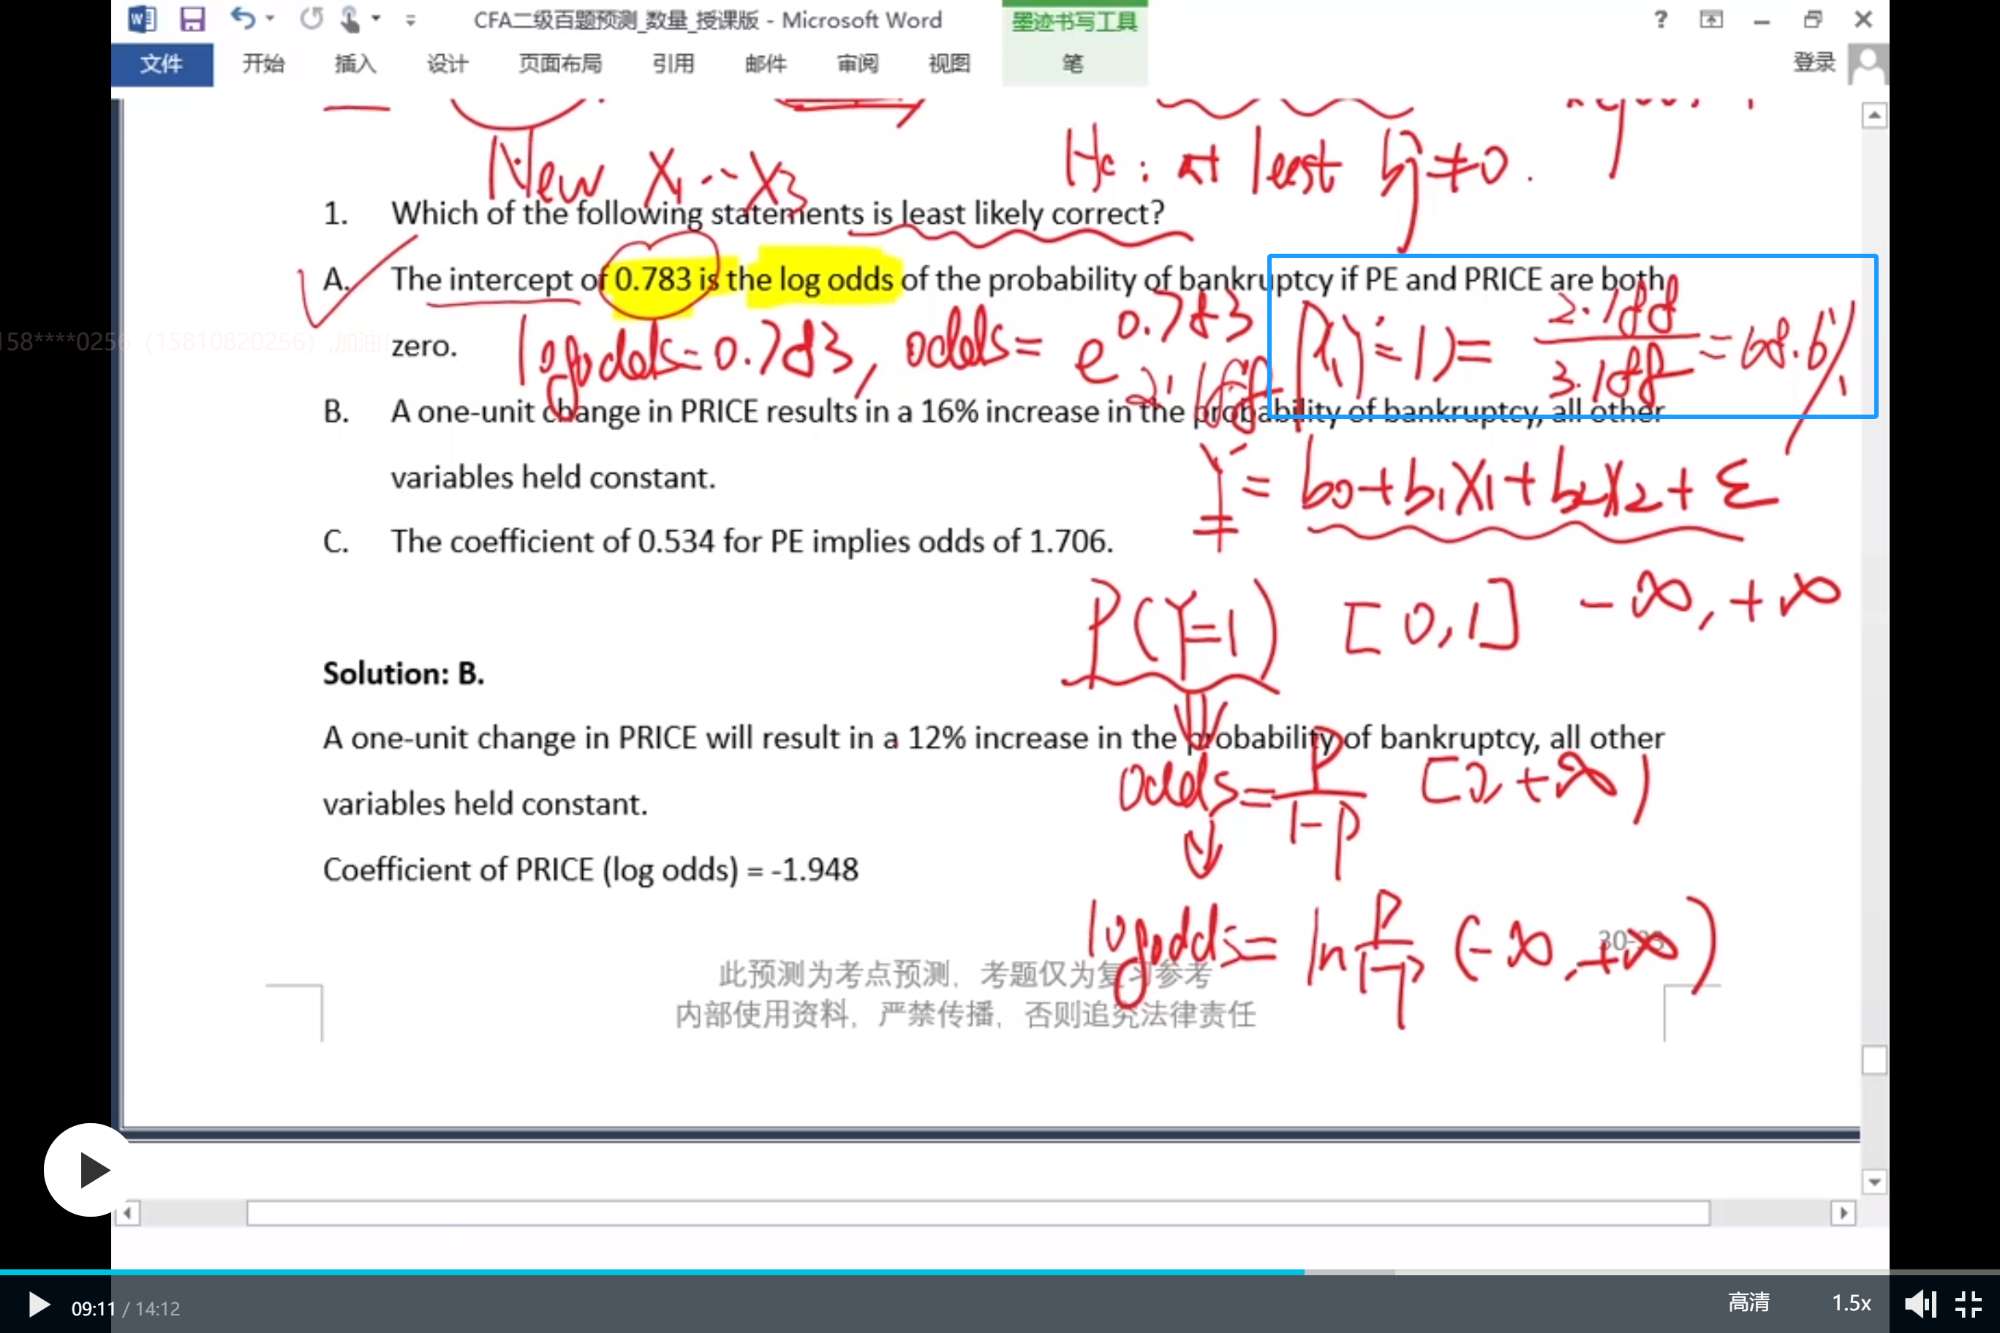 CFA二级百题预测_数量_授课版 - Microsoft Word
墨迹书写工具
?
文件 开始 插入 设计 页面布局 引用 邮件 审阅 视图 笔 登录
New X₁ -- X₃
Hc : at least bj ≠ 0 .
1. Which of the following statements is least likely correct?
A. The intercept of 0.783 is the log odds of the probability of bankruptcy if PE and PRICE are both
zero.
logodds=0.783, odds= e^0.783
2.188
P(Y=1)= 2.188/3.188 =68.6%
B. A one-unit change in PRICE results in a 16% increase in the probability of bankruptcy, all other
variables held constant.
Y = b₀+b₁X₁+b₂X₂+ ε
C. The coefficient of 0.534 for PE implies odds of 1.706.
P(Y=1) [0,1] -∞, +∞
Solution: B.
A one-unit change in PRICE will result in a 12% increase in the probability of bankruptcy, all other
variables held constant.
odds= P/1-P [0, +∞)
Coefficient of PRICE (log odds) = -1.948
logodds= ln P/1-P (-∞, +∞)
此预测为考点预测，考题仅为复习参考
内部使用资料，严禁传播，否则追究法律责任
09:11 / 14:12
高清
1.5x